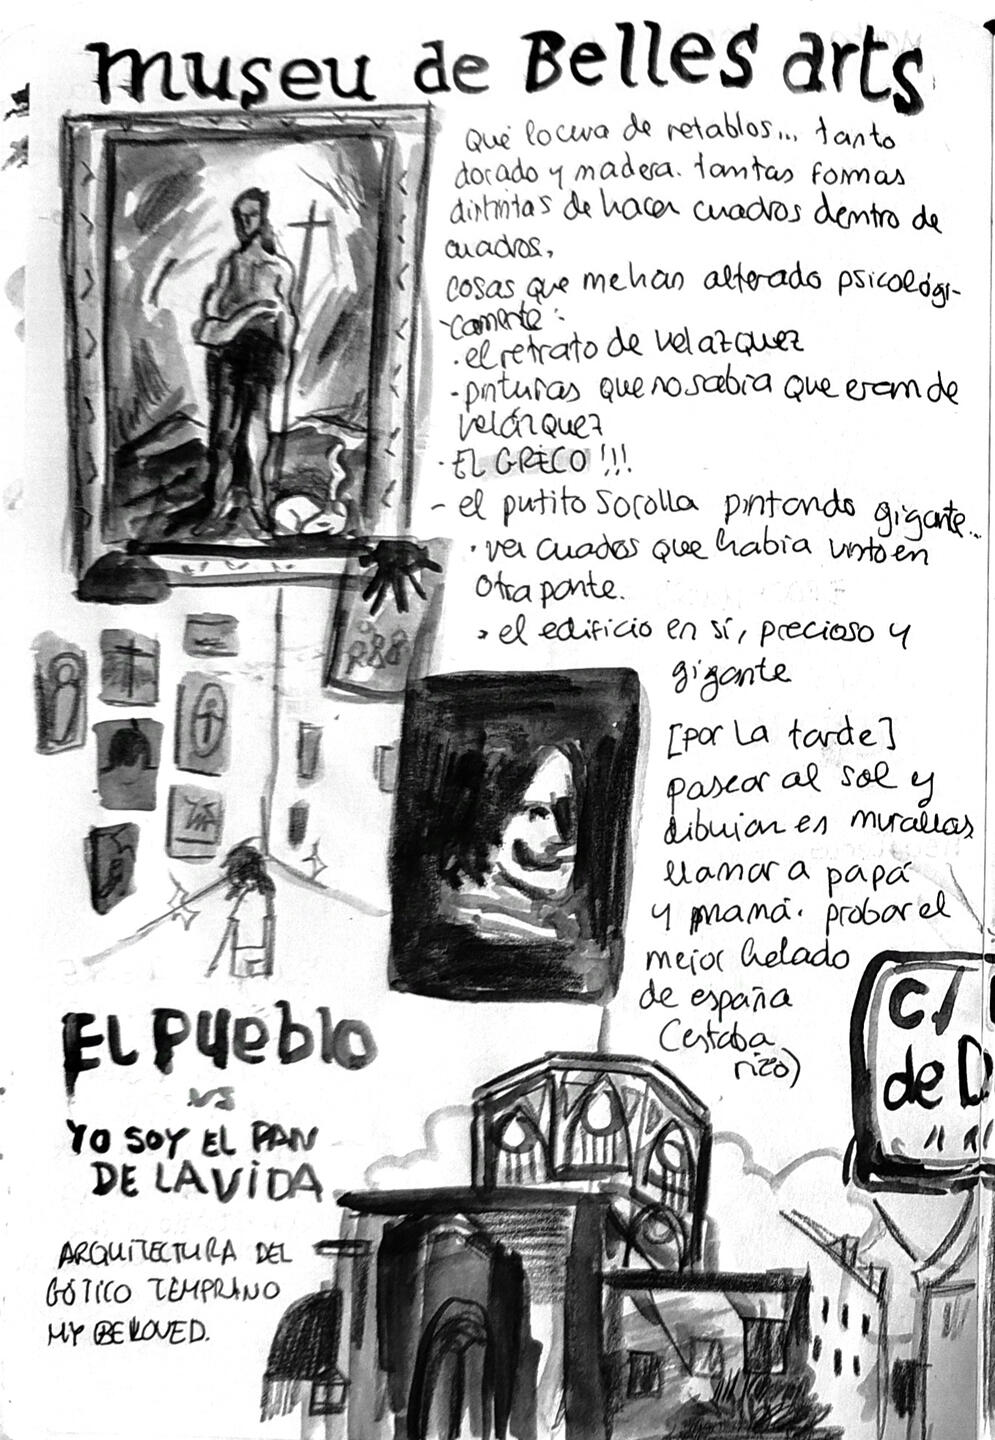 museu de Belles arts
Qué locura de retablos... tanto
dorado y madera. tantas formas
distintas de hacer cuadros dentro de
cuadros.
cosas que me han alterado psicológi-
camente:
· el retrato de velazquez
· pinturas que no sabia que eran de
velázquez
· EL GRECO!!!
- el putito Sorolla pintando gigante...
· ver cuados que habia visto en
otra parte.
· el edificio en sí, precioso y
gigante
[por La tarde]
pasear al sol y
dibujar en murallas
llamar a papá
y mamá. probar el
mejor helado
de españa
(estaba
rizo)
EL PUEblO
vs
YO SOY EL PAN
DE LA VIDA
ARQUITECTURA DEL
GÓTICO TEMPRANO
MY BELOVED.
C/
de D